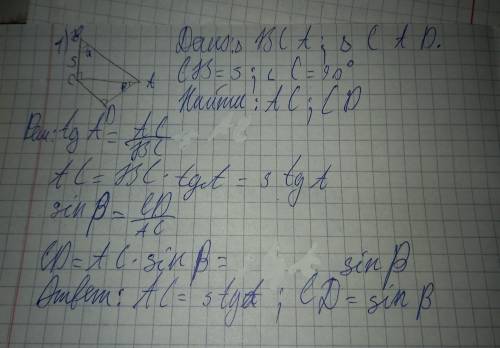 1) B
α
S
C
A
β
D
Дано: Δ BCA; Δ CAD.
CB = s; ∠ C = 90°
Найти: AC; CD
Реш: tg A = AC/BC
AC = BC · tgA = s tgA
sin β = CD/AC
CD = AC · sin β = sin β
Ответ: AC = s tgα; CD = sin β